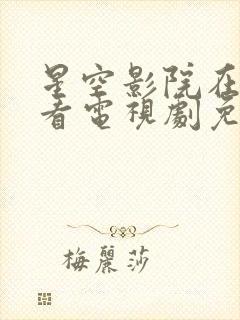 星空影院在
看電視劇免
梅麗莎